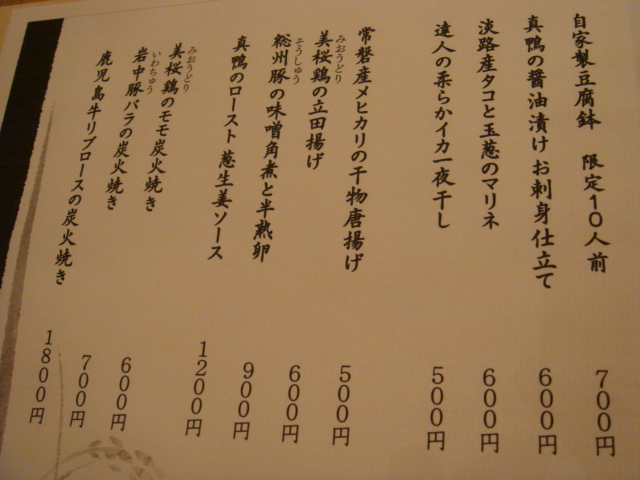 自家製豆腐鉢 限定10人前 700円
真鴨の醤油漬け お刺身仕立て 600円
淡路産タコと玉葱のマリネ 600円
達人の柔らかイカ一夜干し 500円
常磐産メヒカリの干物唐揚げ 500円
みおうどり
美桜鶏の立田揚げ 600円
そうしゅう
総州豚の味噌角煮と半熟卵 900円
真鴨のロースト 葱生姜ソース 1200円
みおうどり
美桜鶏のモモ炭火焼き 600円
いわちゅう
岩中豚バラの炭火焼き 700円
鹿児島牛リブロースの炭火焼き 1800円